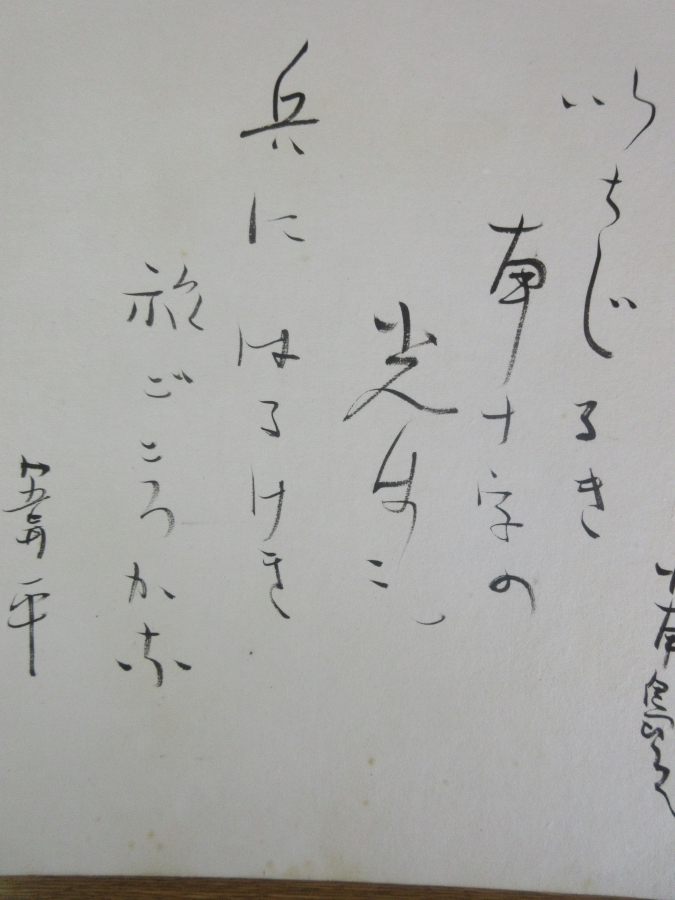 いちじるき
南十字の
光
兵にはるけき
旅ごころかな
葦平